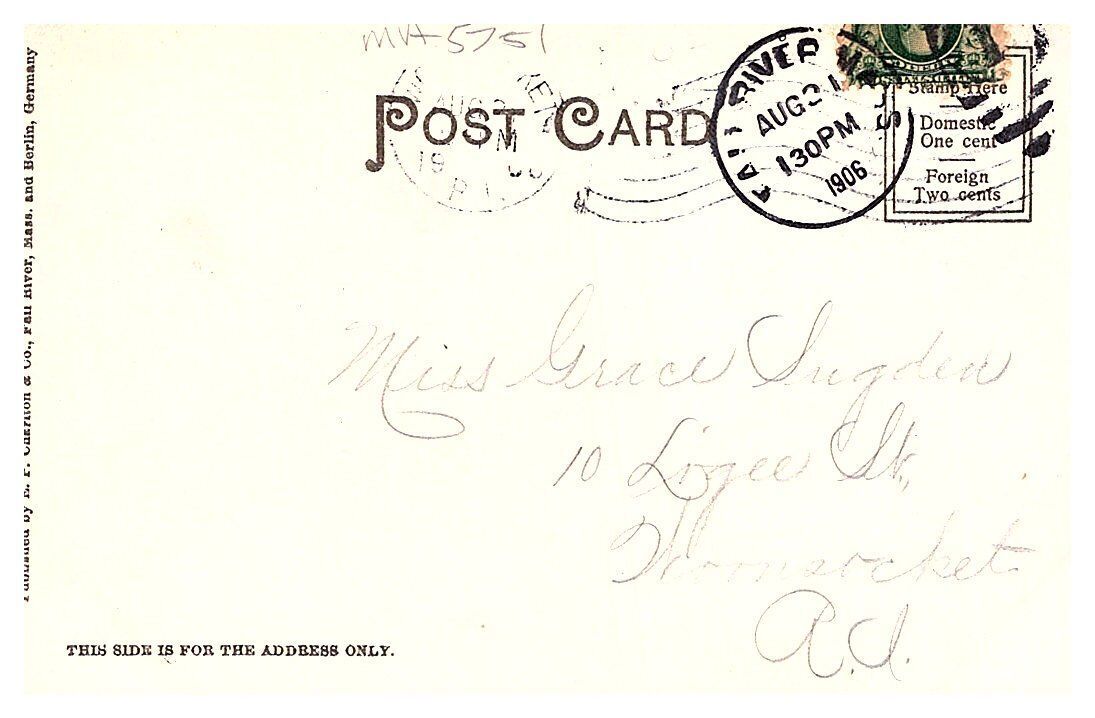 MVA-5751
POST CARD
FALL RIVER MASS.
AUG 21
130PM
1906
AUG 2
M
19 06
R.I.
Stamp Here
Domestic
One cent
Foreign
Two cents
Miss Grace Sugden
10 Logee St.
Woonsocket
R.I.
Published by E. P. Charlton & Co., Fall River, Mass. and Berlin, Germany
THIS SIDE IS FOR THE ADDRESS ONLY.